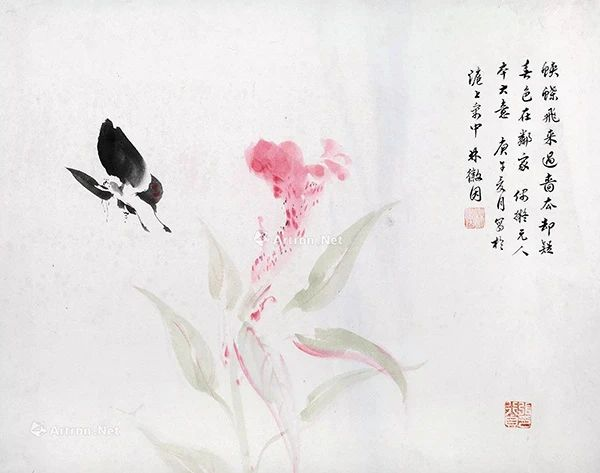 蛺蝶飛来過嗇去却疑
春色在鄰家 偶擬元人
本大意 庚午亥月寫於
滬上家中 林徽因
Artron.Net
Artron.Net